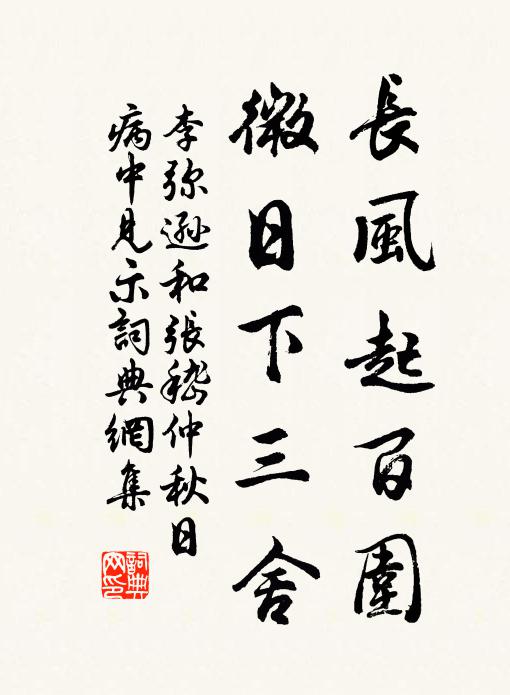 長風起百圍
微日下三舍
李弥遜和張嵇仲秋日
病中見示詞典網集
詞典網印